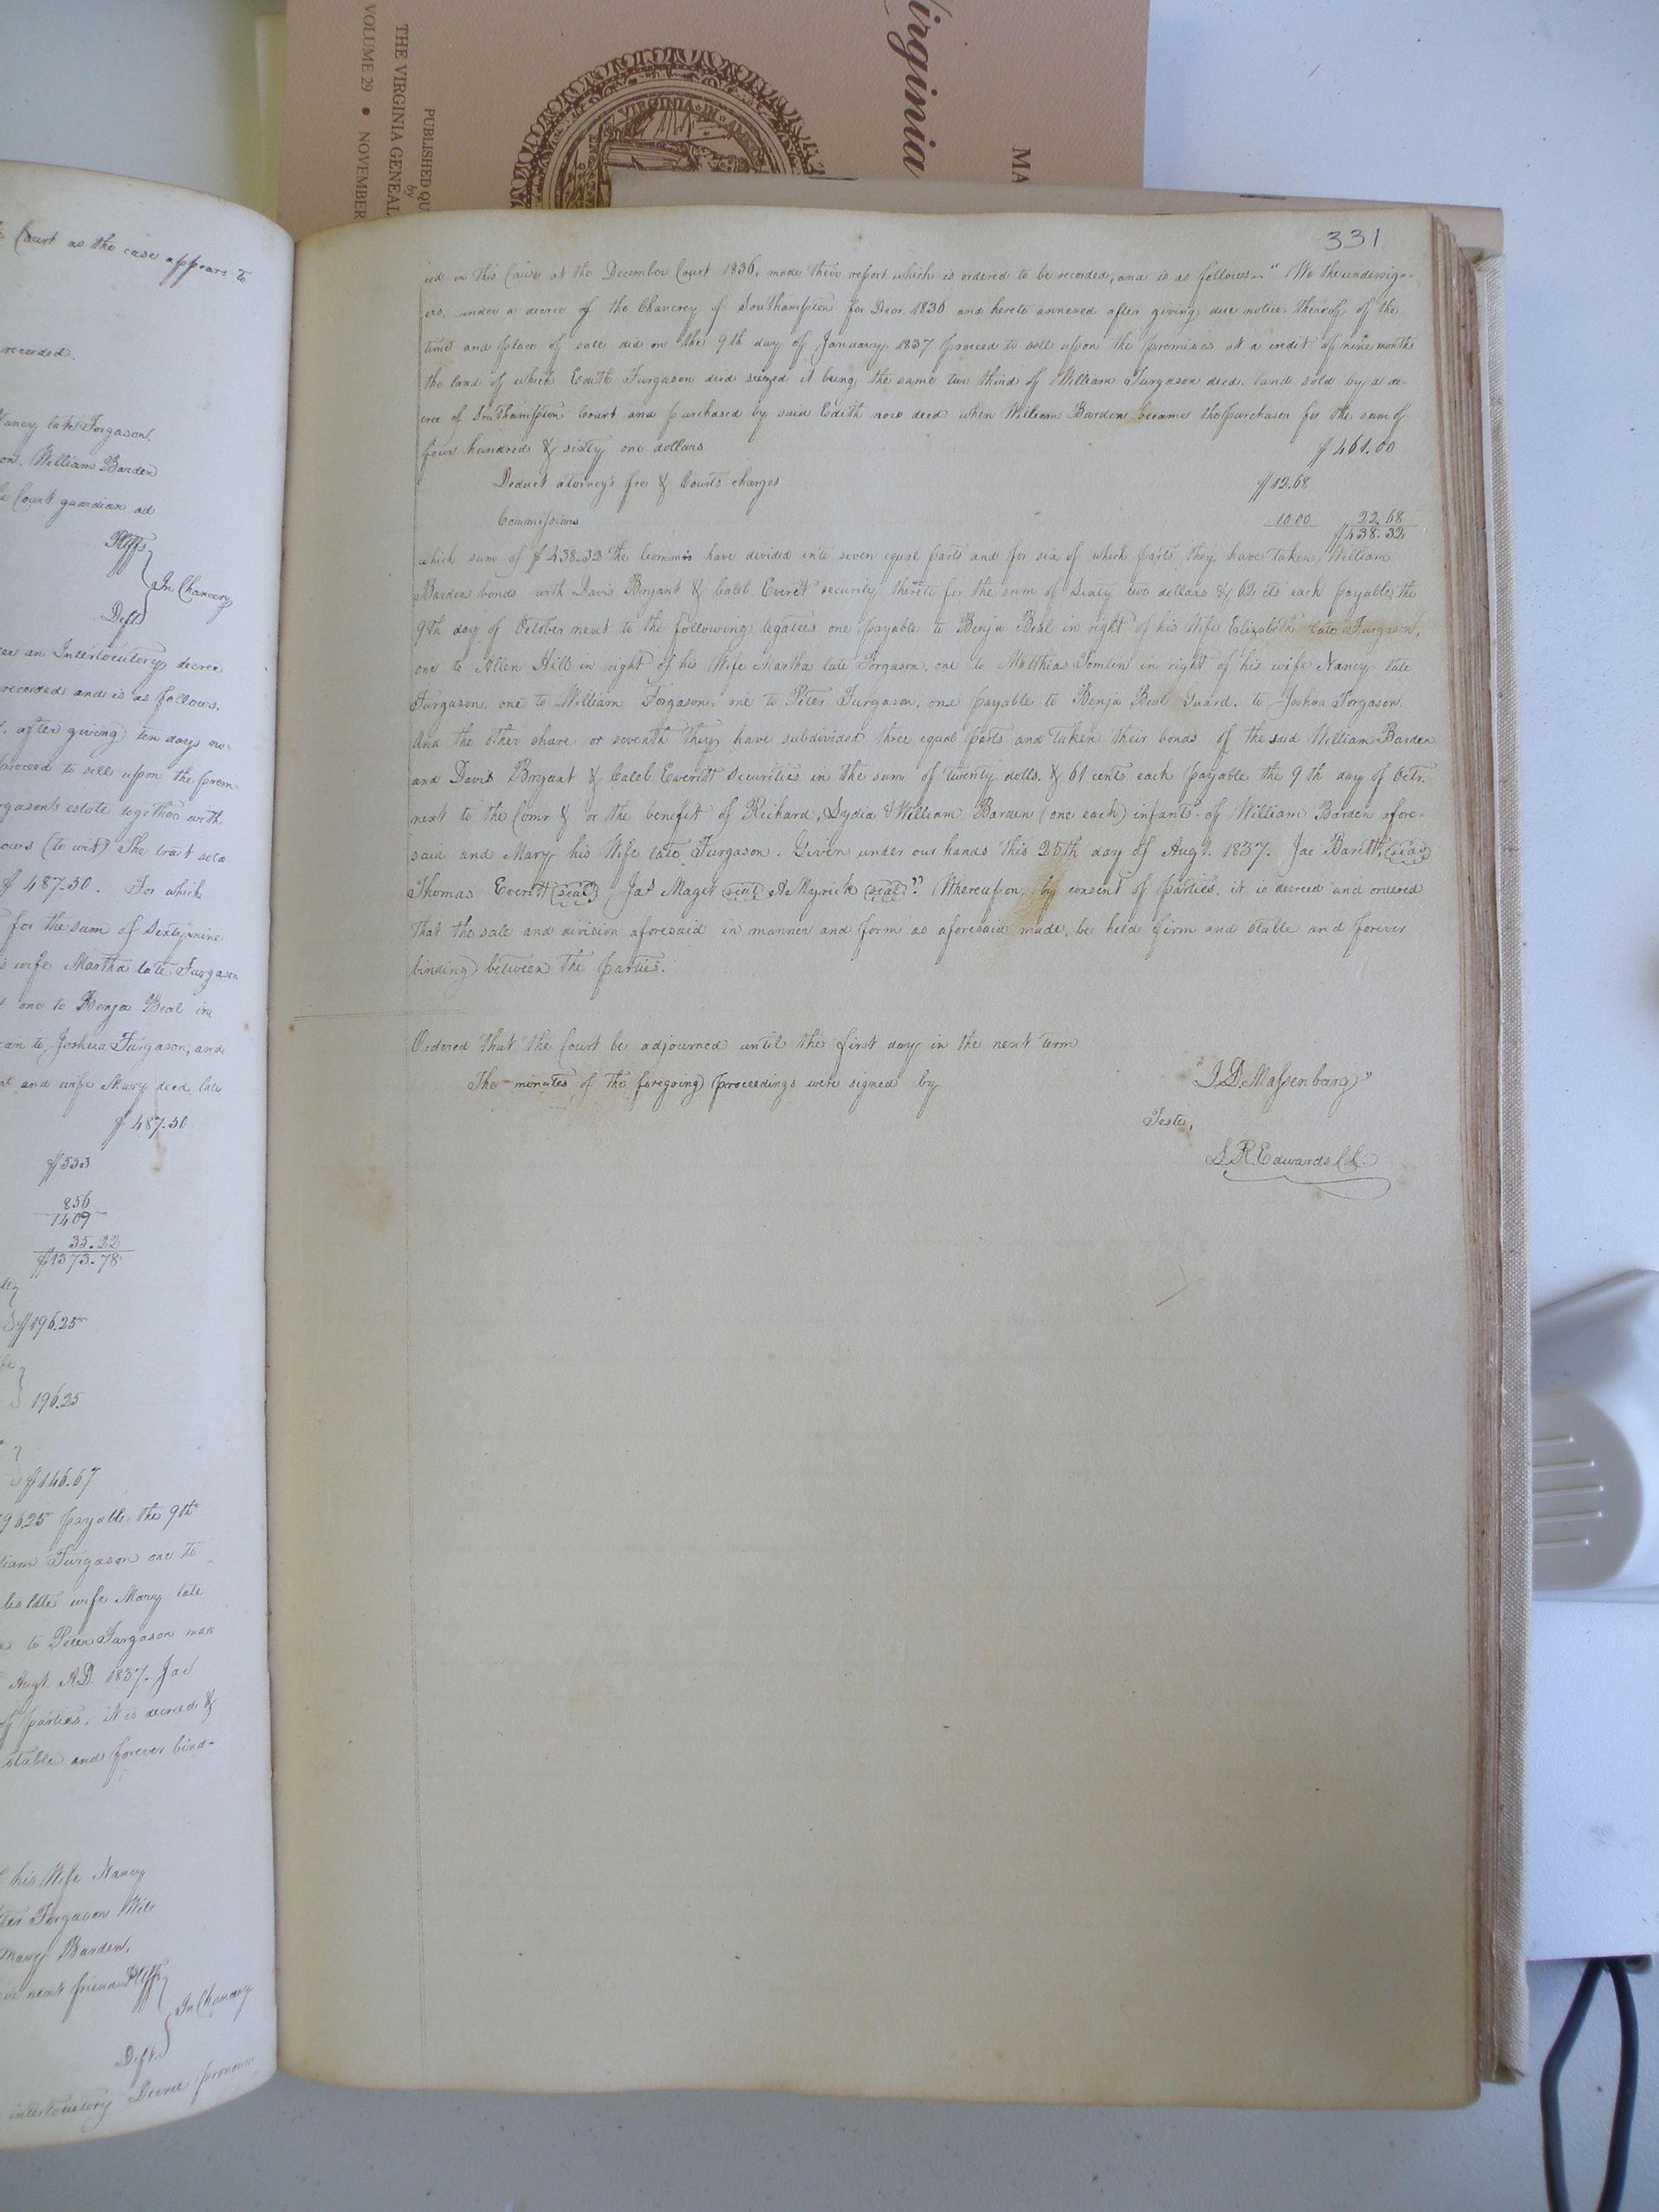 Virginia
MA
PUBLISHED QU
by
THE VIRGINIA GENEAL
VOLUME 29 • NOVEMBER
VIRGINIA
Court as the case appears to
recorded.
Nancy late Forgason.
William Barden
Court guardian ad
Pltffs
In Chancery
Defts
an Interlocutory decree
recorded and is as follows.
after giving ten days no-
proceed to sell upon the prem-
estate together with
(to wit) The tract sold
$ 487.50. For which
for the sum of Sixty nine
wife Martha late Furgason
one to Benja Beal in
to Joshua Furgason, and
and wife Mary decd. late
$ 487.50
$553
856
1409
35.22
$1373.78
$196.25
196.25
$146.67
19625 payable the 9th
Furgason one to
late wife Mary late
to Peter Furgason
Augt. A.D. 1837. Jas
of parties, it is decreed &
stable and forever bind-
his Wife Nancy
Forgason
Mary Barden,
next friend Pltffs
In Chancery
Defts
interlocutory Decree pronoun
331
ced in this Cause at the December Court 1836, made their report which is ordered to be recorded, and is as follows— "We the undersign-
ers, under a decree of the Chancery of Southampton for Decr. 1836 and hereto annexed after giving due notice thereof of the
time and place of sale did on the 9th day of January 1837 proceed to sell upon the premises at a credit of nine months
the land of which Edith Furgason died seized it being the same two third of William Furgason decd. land sold by a de-
cree of Southampton Court and purchased by said Edith now decd when William Barden became the purchaser for the sum of
four hundred & sixty one dollars $ 461.00
Deduct atorney's fee & Courts charges $12.68
Commissions 10.00 22.68
$438.32
which sum of $ 438.32 the Commrs have divided into seven equal parts and for six of which parts they have taken William
Bardens bonds with Davis Bryant & Caleb Everett security thereto for the sum of Sixty two dollars & 62 cts each payable the
9th day of October next to the following legatees one payable to Benja Beal in right of his Wife Elizabeth late Furgason,
one to Allen Hill in right of his Wife Martha late Forgason, one to Matthew Tomlin in right of his wife Nancy late
Furgason, one to William Forgason, one to Peter Furgason, one payable to Benja Beal Guard. to Joshua Forgason.
And the other share or seventh they have subdivided three equal parts and taken their bonds of the said William Barden
and Davis Bryant & Caleb Everitt Securities in the sum of twenty dolls. & 61 cents each payable the 9th day of Octr.
next to the Comr & or the benefit of Richard, Lydia & William Barden (one each) infants of William Barden afore-
said and Mary his Wife late Furgason. Given under our hands this 25th day of Augt. 1837. Jac Barett (seal)
Thomas Everitt (seal) Jas Maget (seal) A Myrick (seal)" Whereupon by consent of parties, it is decreed and ordered
that the sale and division aforesaid in manner and form as aforesaid made, be held firm and stable and forever
binding between the parties.
Ordered that the Court be adjourned until the first day in the next term
The minutes of the foregoing proceedings were signed by "J. D. Massenburg"
Teste,
L. R. Edwards C.C.